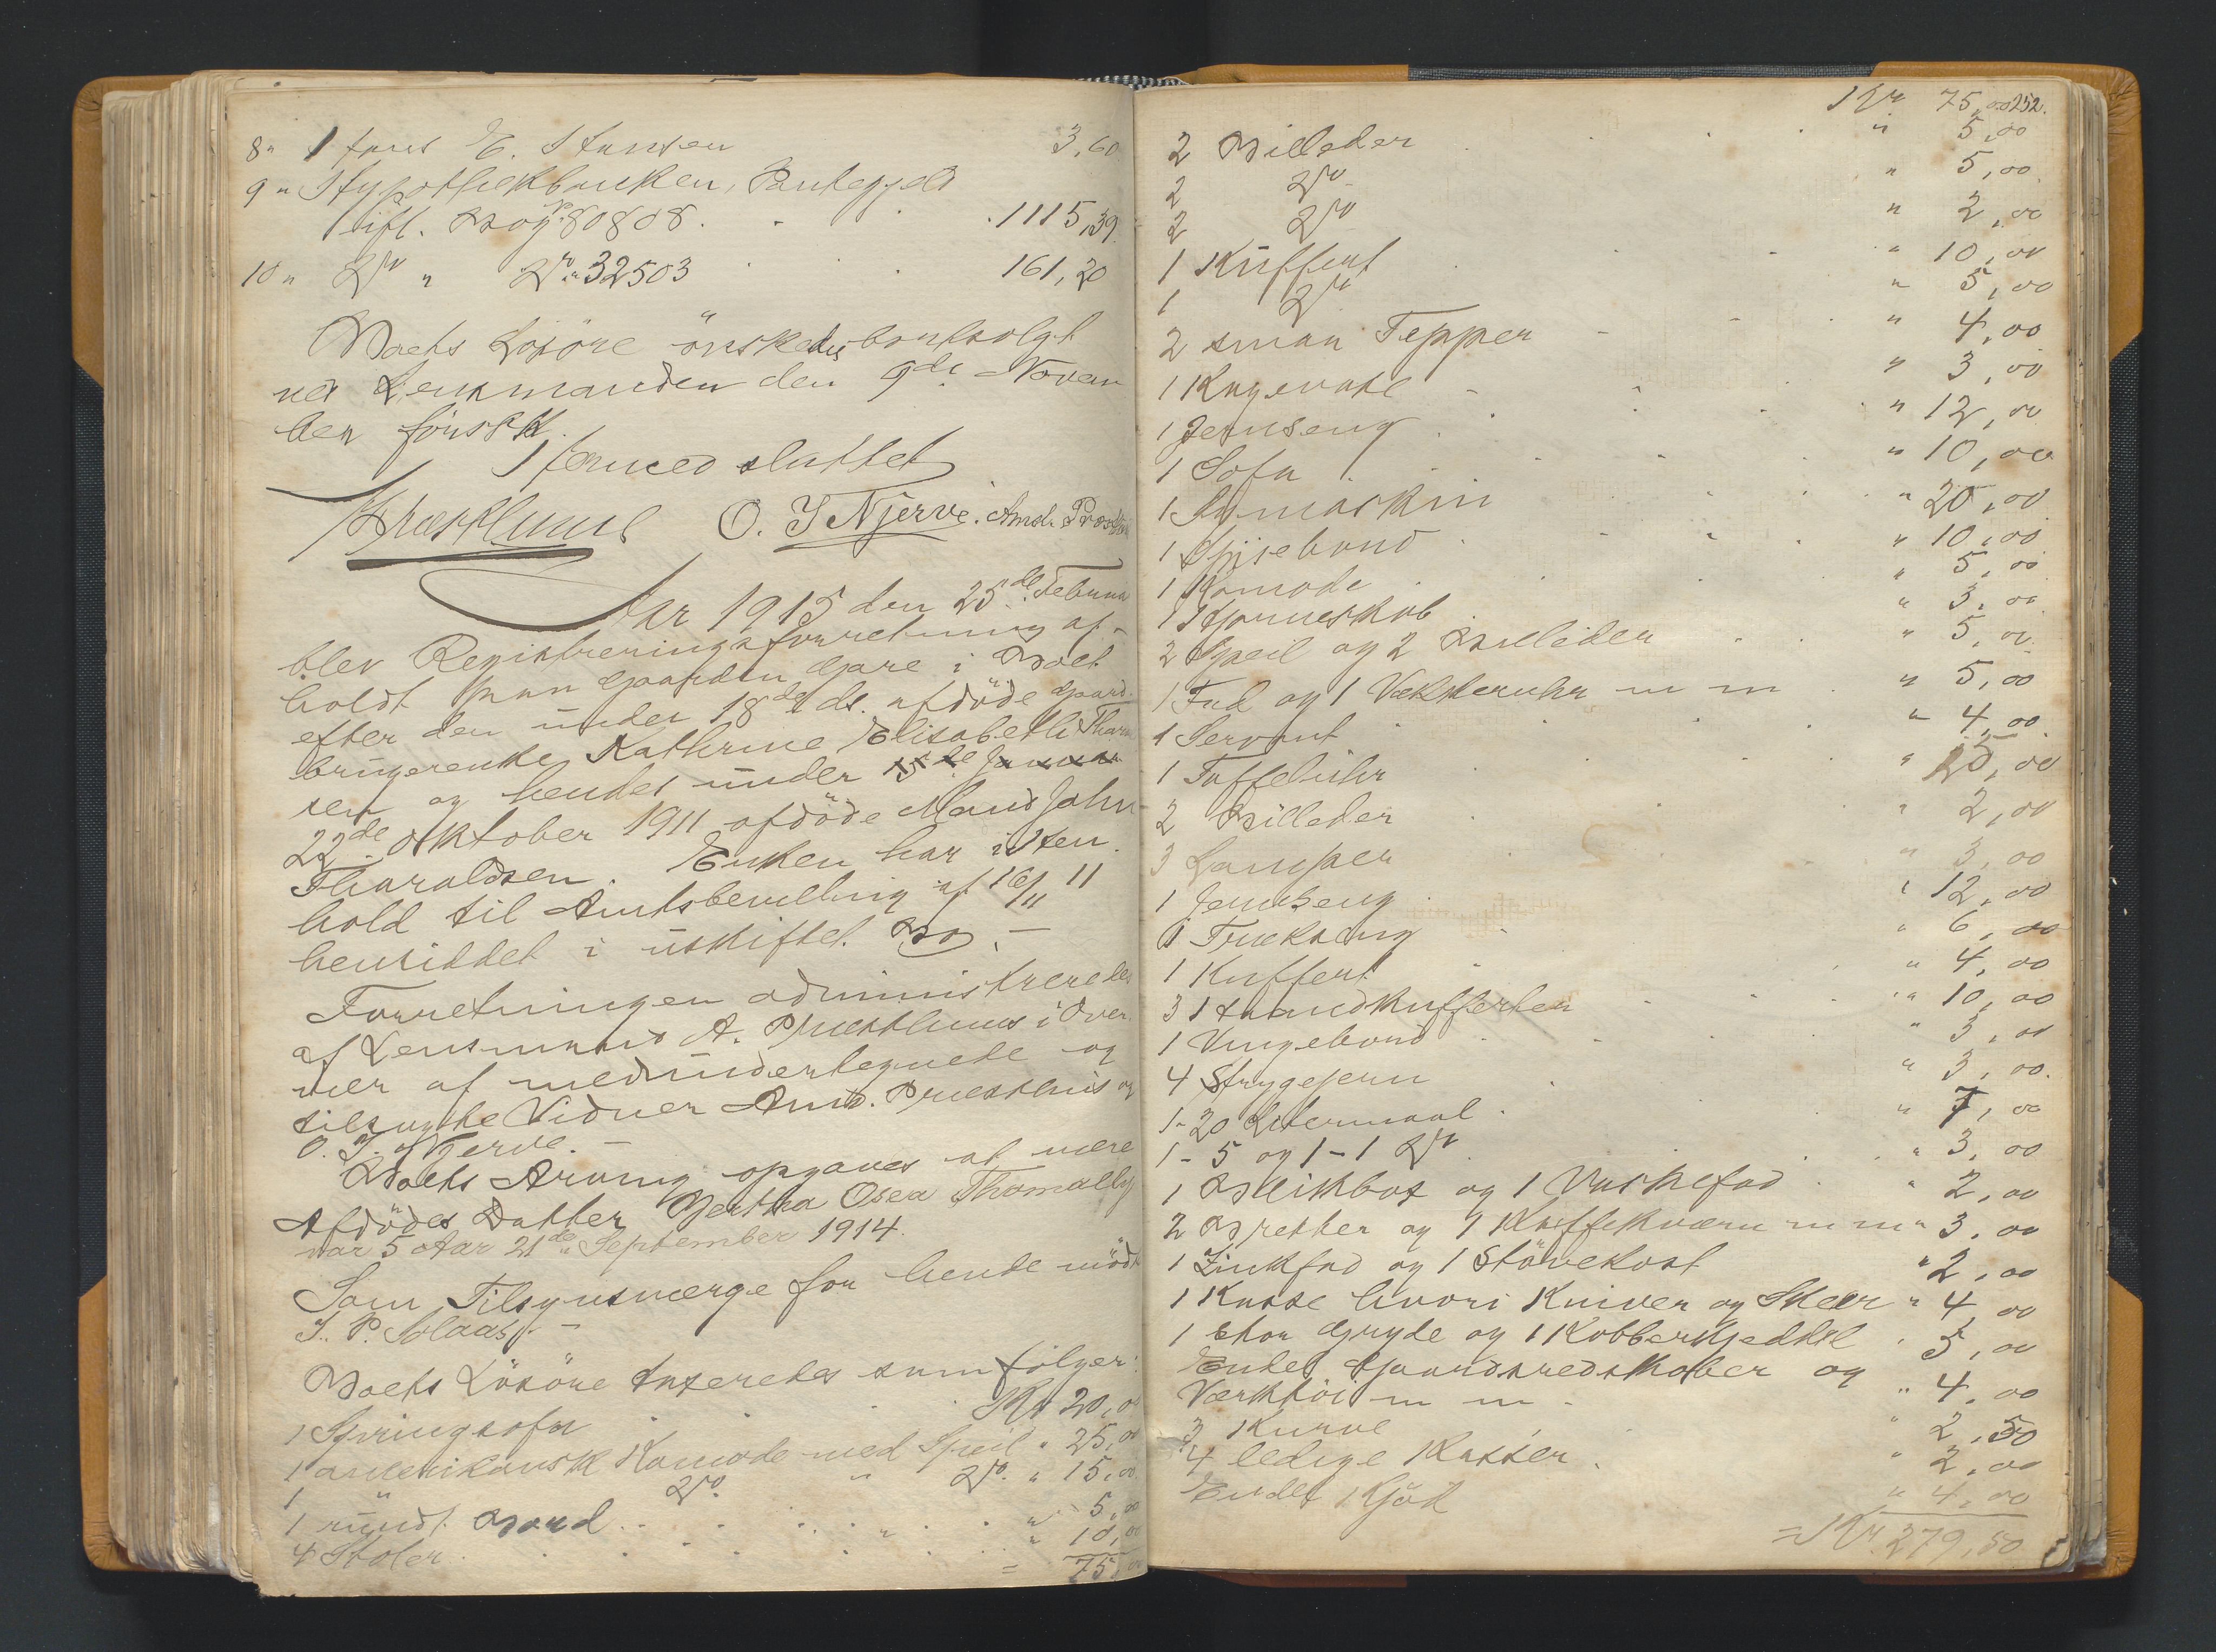 8 " Hans E. Hansen 3,60
9 " Hypothekbanken, Pantegjeld
ifl. Bog No 80808 . . . 1115,39
10 " Do " Do " 32503 . . . 161,20
Boets Løsøre ønskedes bortsolgt
ved Lensmanden den 9de Novem
ber førstk.
Hermed sluttet
A Præsthuus O. J Njerve. Amd. Præsthus
Aar 1915 den 25de Februar
blev Registreringsforretning af-
holdt paa Gaarden Gare i Boet
efter den under 18de ds. afdøde Gaard-
brugerenke Kathrine Elisabeth Thar
sen og hendes under 15de Januar
22de Oktober 1911 afdøde Mand John
Tharaldsen. Enken har i Hen-
hold til Amtsbevilling af 16/11 11
hensiddet i uskiftet Bo. –
Forretningen administreredes
af Lensmand A. Præsthuus i Over
vær af medundertegnede og
tilsagte Vidner Amd. Præsthus og
O. J. Njerve. –
Boets Arving opgaves at være
Afdødes Datter Bertha Osea
var 5 Aar 21de September 1914.
Som Tilsynsværge for hende mødte
J. P. Solaas. –
Boets Løsøre taxeredes som følger:
1 Springsofa . . . Kr 20,00
1 amerikansk Komode med Speil " 25,00
1 " Do " Do. " 15,00
1 rundt Bord . . . " 5,00
4 Stoler . . . " 10,00
= 75,00
252.
Kr 75,00
2 Billeder . . . " 5,00
2 Do " 5,00
2 Do " 2,00
1 Kuffert . . . " 10,00
1 Do " 5,00
2 smaa Tepper - - . " 4,00
1 Kagevase - - . " 3,00
1 Jernseng . . . " 12,00
1 Sofa . . . " 10,00
1 Symaskin . . . " 20,00
1 Spisebord . . . " 10,00
1 Komode . . . " 5,00
1 Hjørneskab . . . " 3,00
2 Speil og 2 Billeder . . " 5,00
1 Fad og 1 Vækkeruhr m m . " 5,00
1 Servant . . . " 4,00
1 Taffeluhr . . . " 15,00
2 Billeder . . . " 2,00
3 Lamper " 3,00
1 Jernseng . " 12,00
1 Trækseng . " 6,00
1 Kuffert . . " 4,00
3 Haandkufferter . . . " 10,00
1 Vingebord . . . " 3,00
4 Strygejern . " 3,00
1-20 Litermaal . . " 7,00
1-5 og 1-1 Do . . " 3,00
1 Blikbox og 1 Vaskefad . " 2,00
2 Bretter og 1 Kaffekværn m m " 3,00
1 Zinkfad og 1 Støvekost " 2,00
1 Kasse hvori Kniver og Skeer " 4,00
1 stor Gryde og 1 Kobberkjeddel . 5,00
Endel Gaardsredskaber og
Værktøi m m . " 4,00
3 Kurve " 2,50
4 ledige Kasser . " 2,00
Endel Kjøk " 4,00
= Kr. 279,50